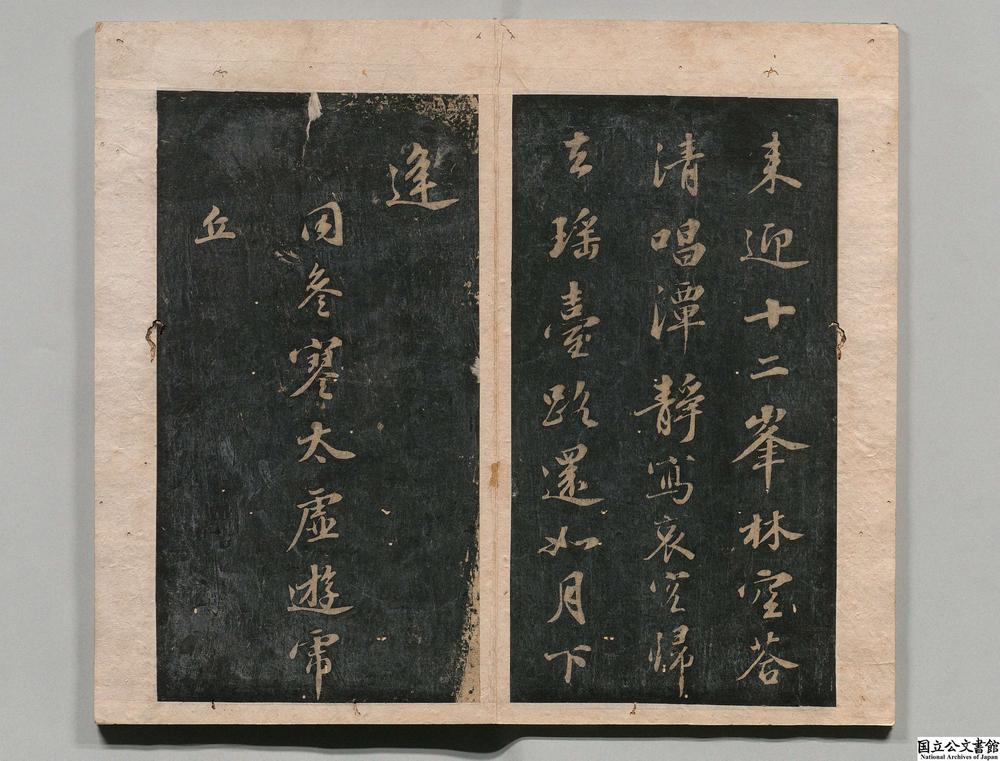 来迎十二峯林空答
清唱潭靜寫哀容歸
去瑶臺路還如月下
逢
同參寥太虛遊虎
丘
国立公文書館
National Archives of Japan